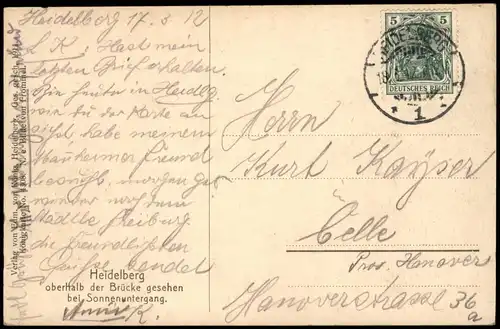 Heidelberg 17.8.12
L K; Hast mein
letzten Brief erhalten.
Bin heute in Heidlbg
wie du der Karte an
siehst habe meinem
Mannheimer Freund
besucht, morgen geh
wieder nach dem
Städtle Freiburg
die freundlichsten
Grüsse sendet
Heidelberg
oberhalb der Brücke gesehen
bei Sonnenuntergang.
5 5
DEUTSCHES REICH
HEIDELBERG
1
Herrn
Kurt Kayser
Celle
Prov. Hanover
Hanoverstrasse 36
a